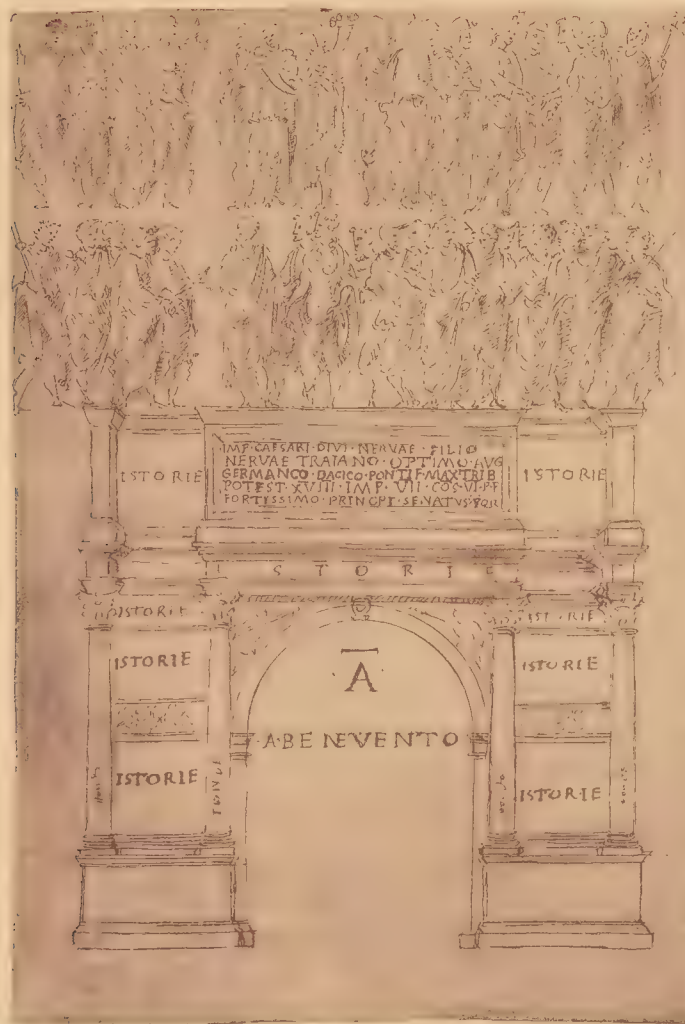 ISTORIE
IMP·CAESARI·DIVI·NERVAE·FILIO
NERVAE TRAIANO·OPTIMO·AVG
GERMANCO·DACICO·PONTIF·MAX·TRIB
POTEST·XVIII·IMP·VII·COS·VI·P·P
FORTISSIMO·PRINCIPI·SENATVS·PQR
ISTORIE
ISTORIE
ISTORIE
ISTORIE
ISTORIE
ISTORIE
A
ABENEVENTO
ISTORIE
ISTORIE